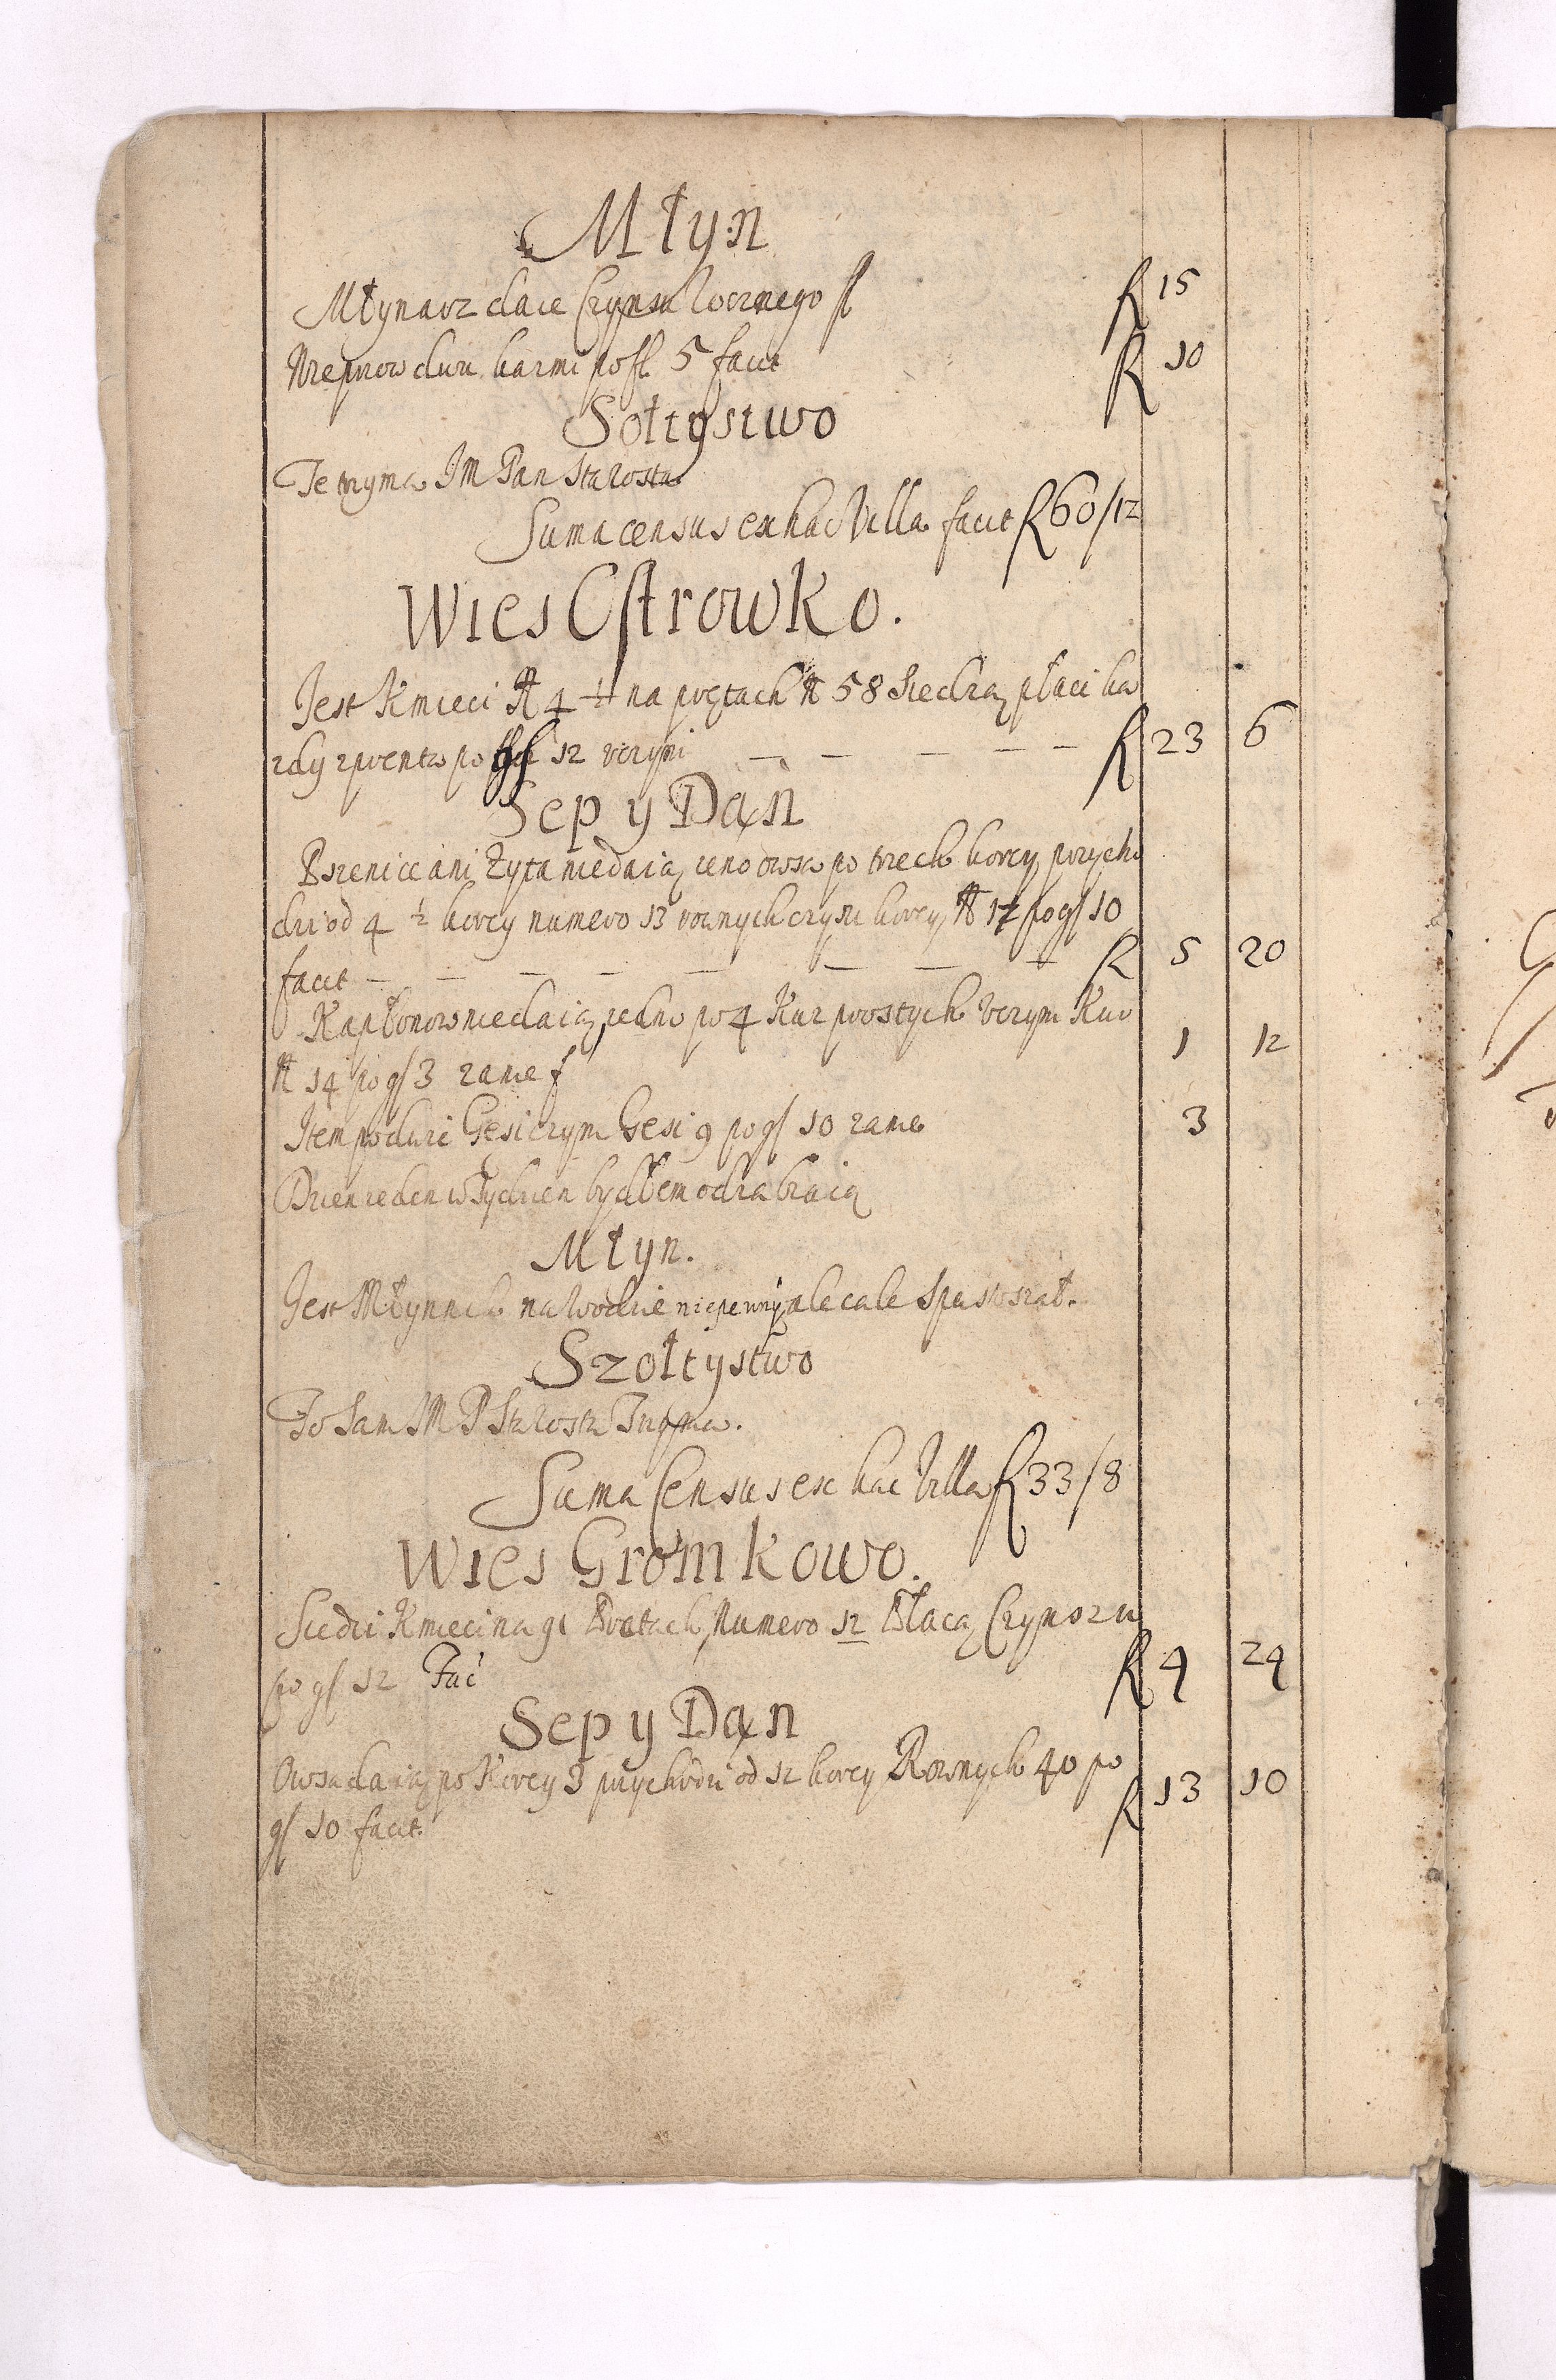 Młyn
Młynarz daie Czynszu Rocznego fl fl 15
Wieprzow dwu karmi po fl 5 facit fl 10
Sołtystwo
Te trzyma JM Pan Starosta
Suma census ex hac Villa facit fl 60/12
Wies Ostrowko.
Jest Kmieci N 4 ½ na prętach N 58 Siedzą płaci ka
zdy z pręta po gſ 12 uczyni — — — — — fl 23 6
Sep y Dąn
Pszenice ani Zyta niedaią ieno owsa po trzech korcy przycho
dzi od 4 ½ korcy numero 13 rownych czyni korcy N 17 po gſ 10
facit — — — — — — — — fl 5 20
Kapłonow niedaią iedno po 4 Kur prostych Uczyni Kur
N 14 po gſ 3 zanie f 1 12
Item po dwie Gęsi czyni Gesi 9 po gſ 10 zanie 3
Dzien ieden w Tydzien bydłem odrabiaią
Młyn.
Jest Młynnik na Wodzie niepewny ale cale spustoszał.
Szołtystwo
To Sam JM P Starosta Trzyma.
Suma Census ex hac Villa fl 33/8
Wies Gromkowo.
Siedzi Kmieci na 91 Prętach Numero 12 Płacą Czynszu
po gſ 12 Fac fl 4 24
Sep y Dąn
Owsa daią po Korcy 3 przychodzi od 12 korcy Rownych 40 po
gſ 10 facit. fl 13 10